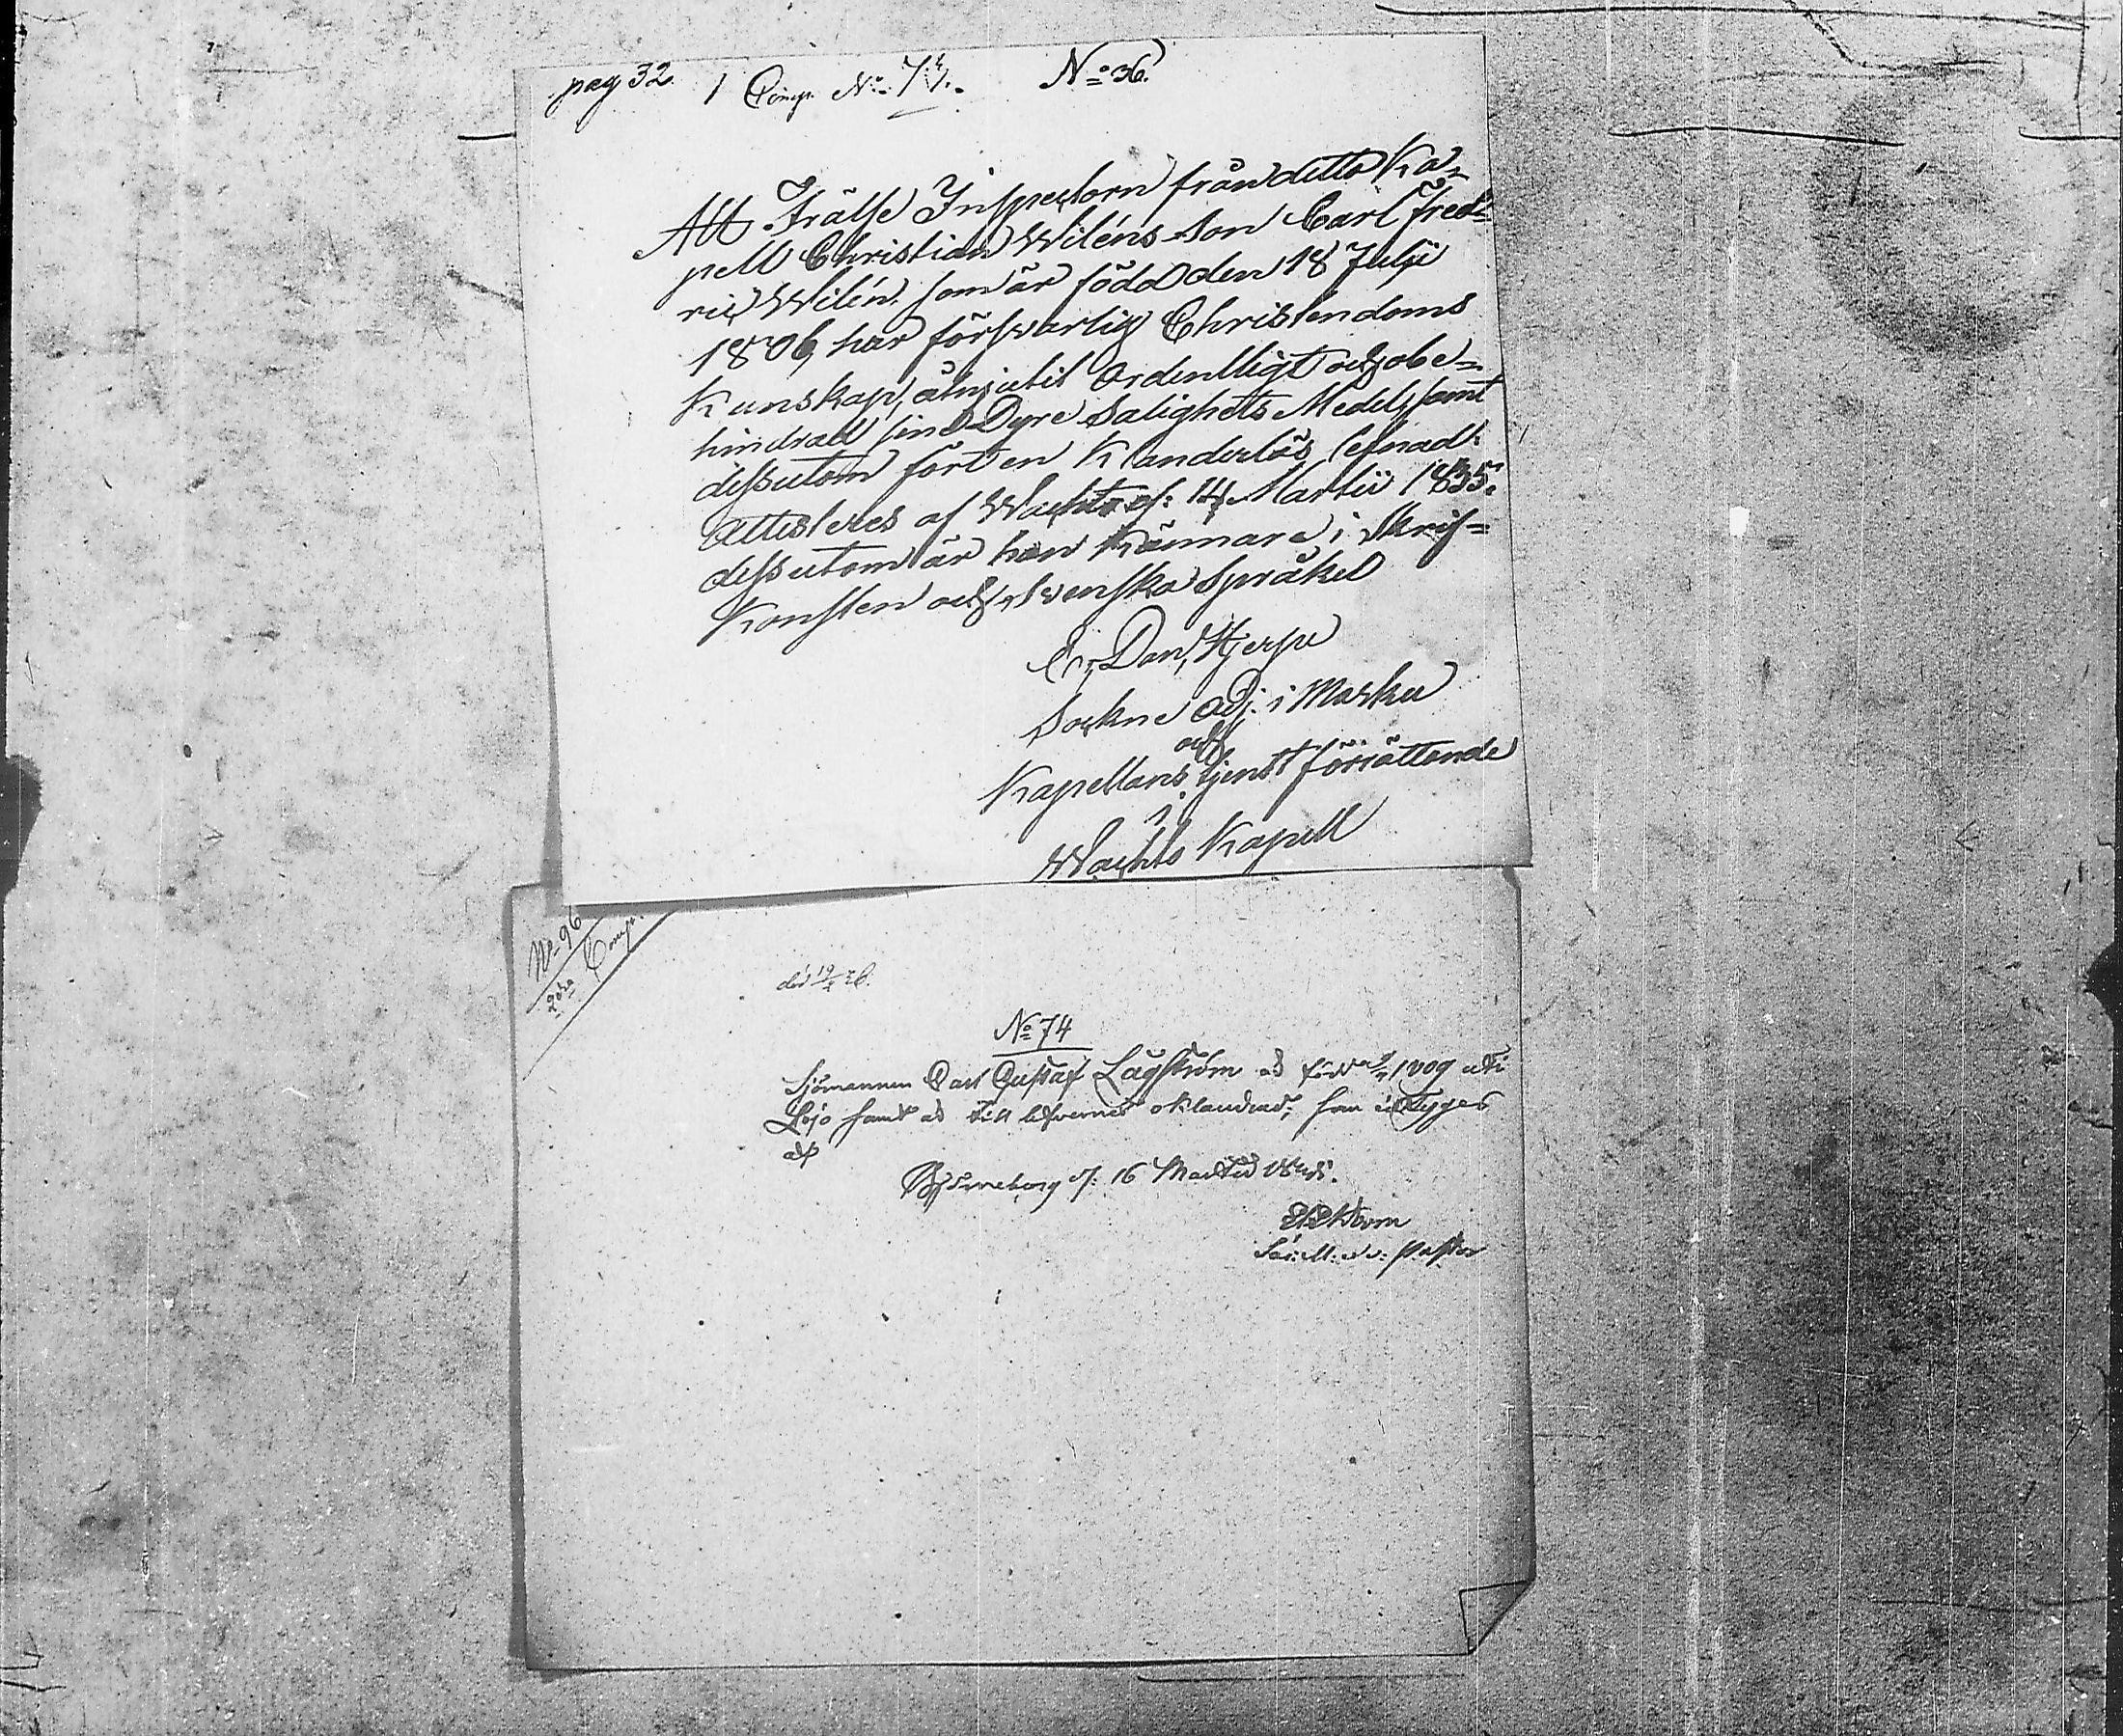 pag 32. 1 Comp. No. 74. No 36.
Att Frälse Inspectorn från detta Ka=
pell Christian Wiléns Son Carl Fred=
ric Wilén, som är född den 18 Julii
1806, har försvarlig Christendoms
Kunskap, åtnjutit Ordentligt och obe=
hindrad sine Dyre Salighets Medel, samt
dessutom fört en Klanderlös lefnad:
Attesteres af Wachts of: 14 Martii 1835.
dessutom är han Kännare i Skrif=
Konsten och Svenska Språket
Er, Dan, Hjerpe
Sockne Adj: i Masku
och
Kapellans tjenst förrättande
i
Wachts Kapell
No 96
2dra Comp.
död 19
No 74
Sjömannen Carl Gustaf Lagström är född 1809 uti
Lojo samt är till lefvernet oklandrad; som intyges
af
Björneborg of: 16 Martii
Pastor